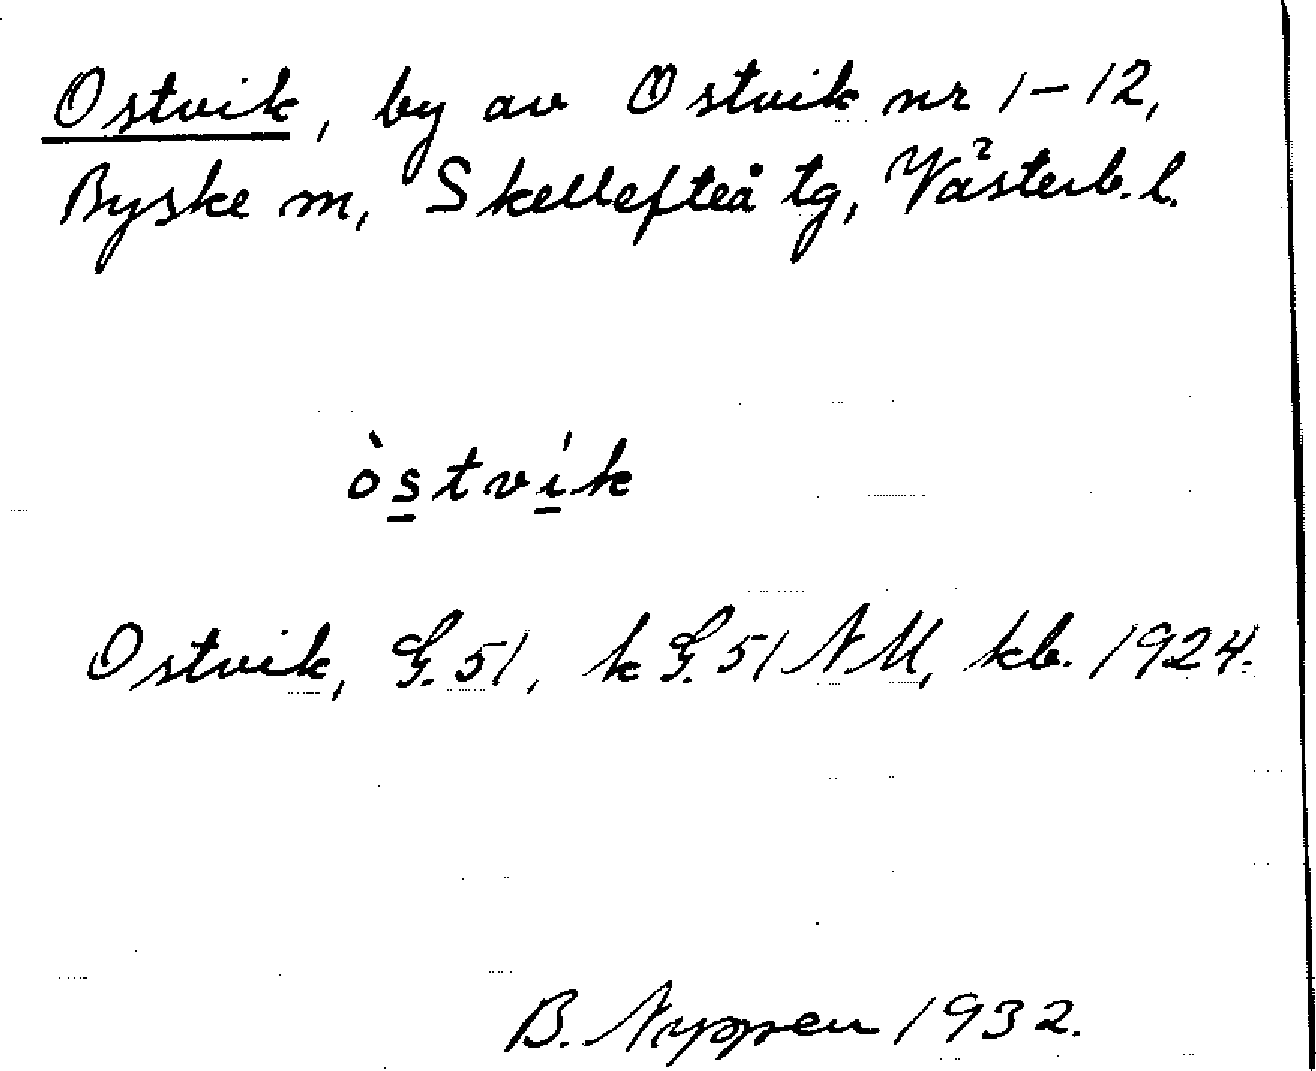 Ostvik, by av Ostvik nr 1-12,
Byske m, Skellefteå tg, Västerb. l.
òs̲tví̲k
Ostvik, G. 51, k G. 51 NM, kb. 1924.
B. Nyppen 1932.